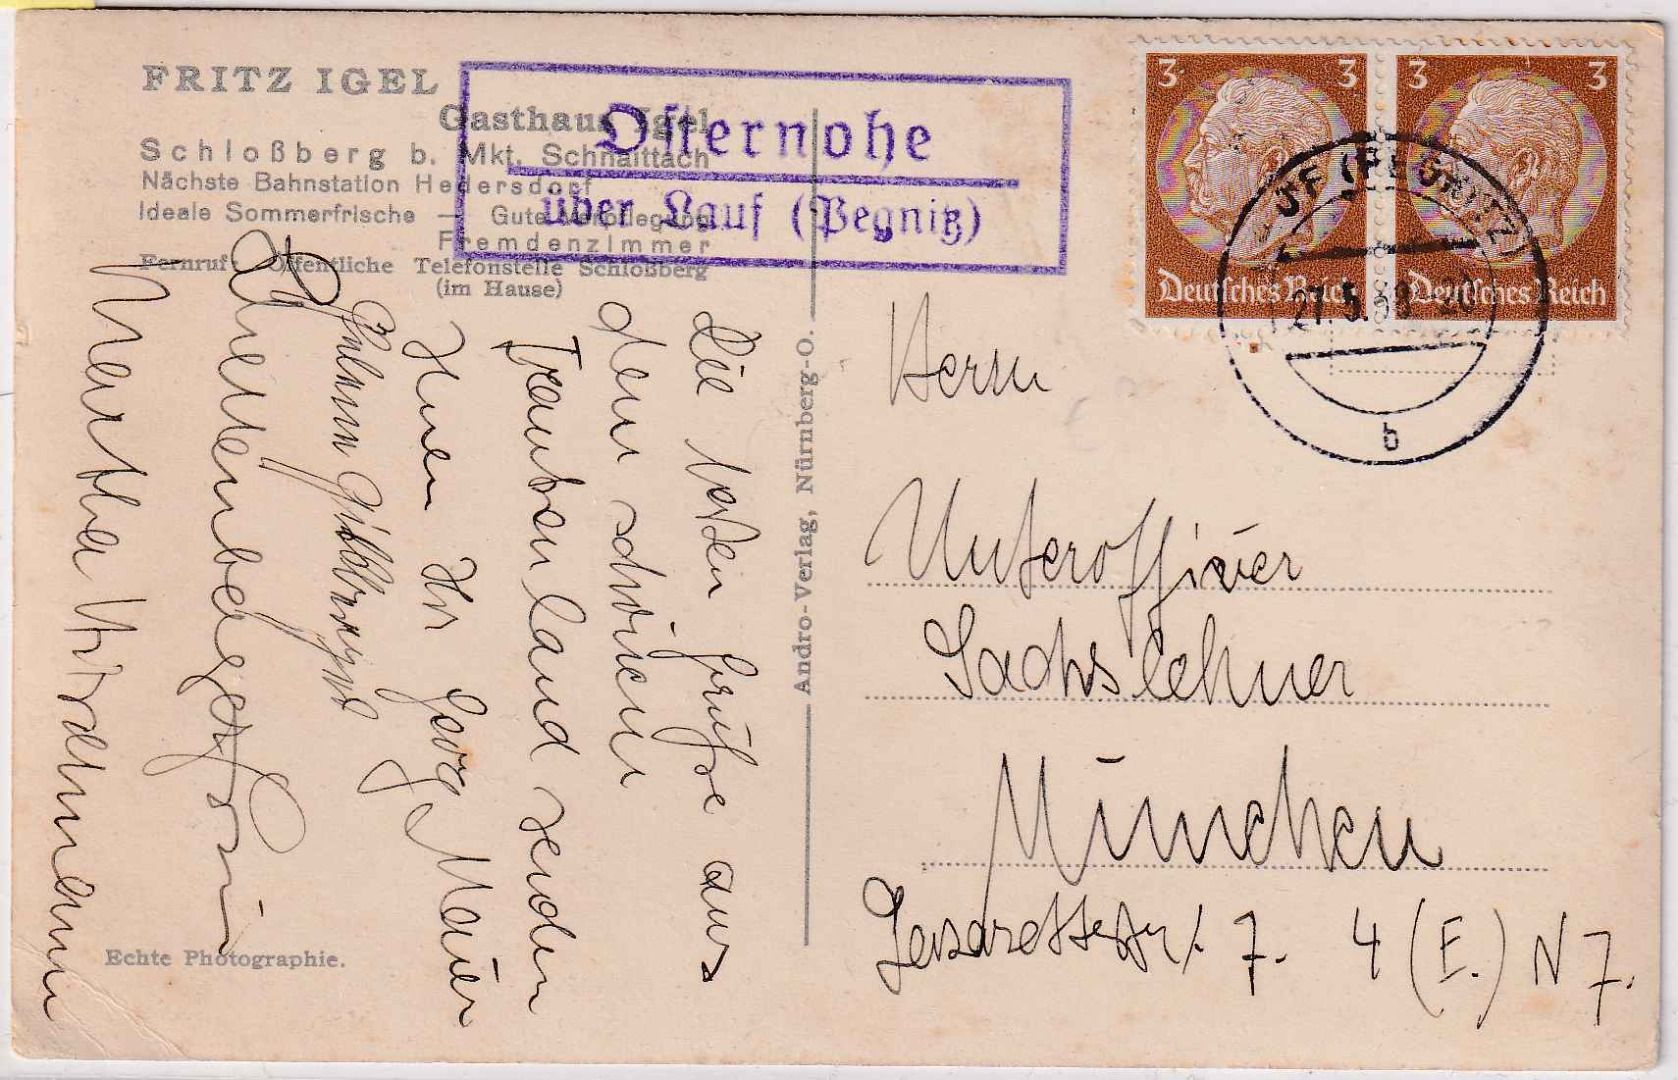 FRITZ IGEL
Gasthaus Igel
Schloßberg b. Mkt. Schnaittach
Nächste Bahnstation Hedersdorf
Ideale Sommerfrische — Gute Verpflegung
Fremdenzimmer
Fernruf: Öffentliche Telefonstelle Schloßberg
(im Hause)
Osternohe
über Lauf (Pegnitz)
3 3
Deutsches Reich
3 3
Deutsches Reich
(PEGNITZ)
27.5.38
b
Die besten Grüße aus
dem schönen
Frankenland senden
Ihnen Ihr Georg Mauer
Martha
Echte Photographie.
Andro-Verlag, Nürnberg-O.
Herrn
Unteroffizier
Sachslehner
München
7. 4 (E.) N 7.